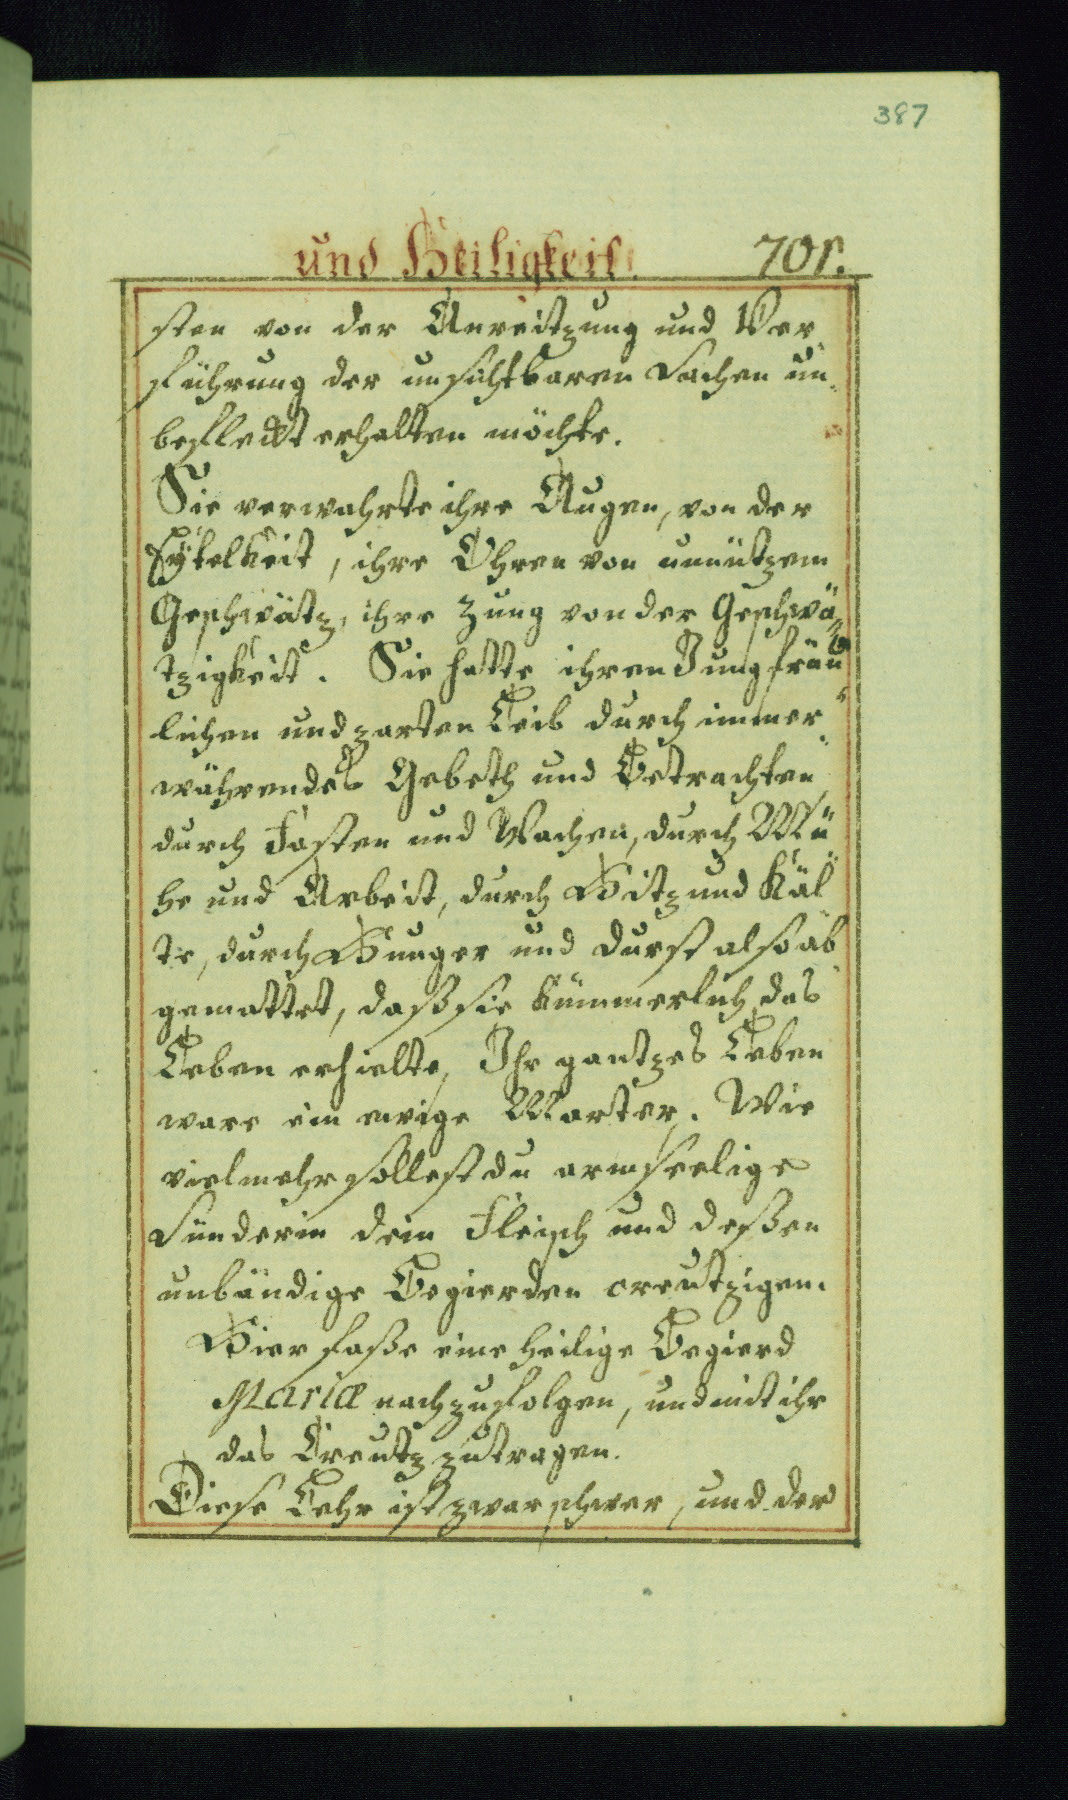 387
und Heiligkeit. 701.
sten von der Anreitzung und Ver
führung der unsichtbaren Sachen un
befleckt erhalten möchte.
Sie verwahrte ihre Augen, von der
Eytelkeit, ihre Ohren von unnützem
Geschwätz, ihre Zung von der Geschwä
tzigkeit. Sie hatte ihren Jungfräu
lichen und zarten Leib durch immer
währendes Gebeth und Betrachten,
durch Fasten und Wachen, durch Mü
he und Arbeit, durch Hitz und Käl
te, durch Hunger und Durst also ab
gemattet, daß sie kümmerlich das
Leben erhielte, Ihr gantzes Leben
ware ein ewige Marter. Wie
vielmehr sollest du armseelige
Sünderin dein Fleisch und deßen
unbändige Begierden creutzigen.
Hier faße eine heilige Begierd
Mariæ nachzufolgen, und mit ihr
das Creutz zu tragen.
Diese Lehr ist zwar schwer, und der